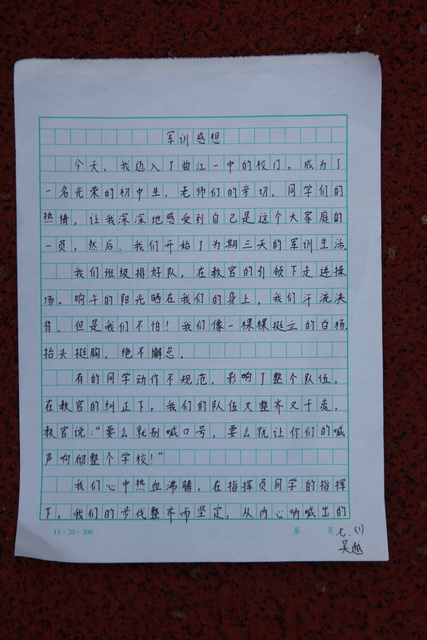 军训感想
今天，我迈入了曲江一中的校门，成为了
一名光荣的初中生，老师们的亲切，同学们的
热情，让我深深地感受到自己是这个大家庭的
一员。然后，我们开始了为期三天的军训生活
我们班级排好队，在教官的引领下走进操
场。晌午的阳光晒在我们的身上，我们汗流夹
背，但是我们不怕！我们像一棵棵挺立的白杨，
抬头挺胸，绝不懈怠。
有的同学动作不规范，影响了整个队伍。
在教官的纠正下，我们的队伍又整齐又干练，
教官说：“要么就别喊口号，要么就让你们的喊
声响彻整个学校！”
我们心中热血沸腾，在指挥员同学的指挥
下，我们的步伐整齐而坚定，从内心呐喊出的
15×20=300 第 页
七.(1)
吴越